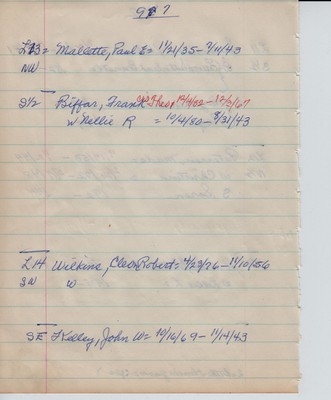 917
L13= Mallette, Paul E= 11/21/35-7/11/43
NW
S1/2 Biffar, Frank Chas 12/4/72-12/3/67
w Nellie R = 10/4/80-8/31/43
L14 Wilkins, Cleo Robert= 4/23/76-11/10/56
SW W
SE Kelley, John W= 10/16/69-11/14/43